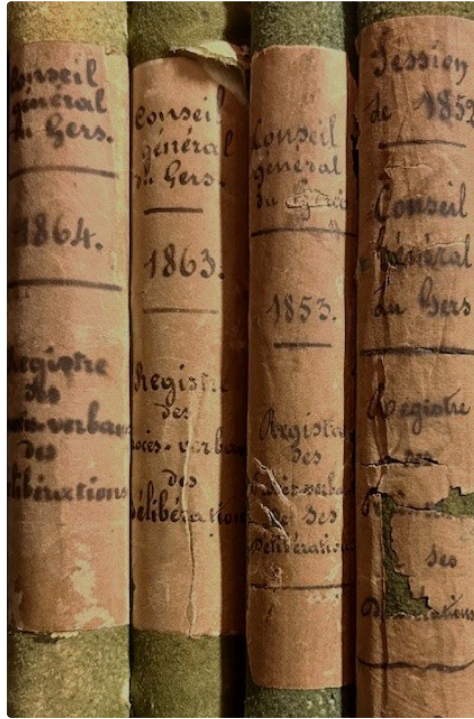 Conseil
général
du Gers.
1864.
Registre
des
procès-verbaux
des
délibérations
Conseil
général
du Gers.
1863.
Registre
des
procès-verbaux
des
délibérations
Conseil
général
du Gers
1853.
Registre
des
procès-verbaux
de ses
délibérations
Session
de 1852
Conseil
Général
du Gers
Registre
des
ses